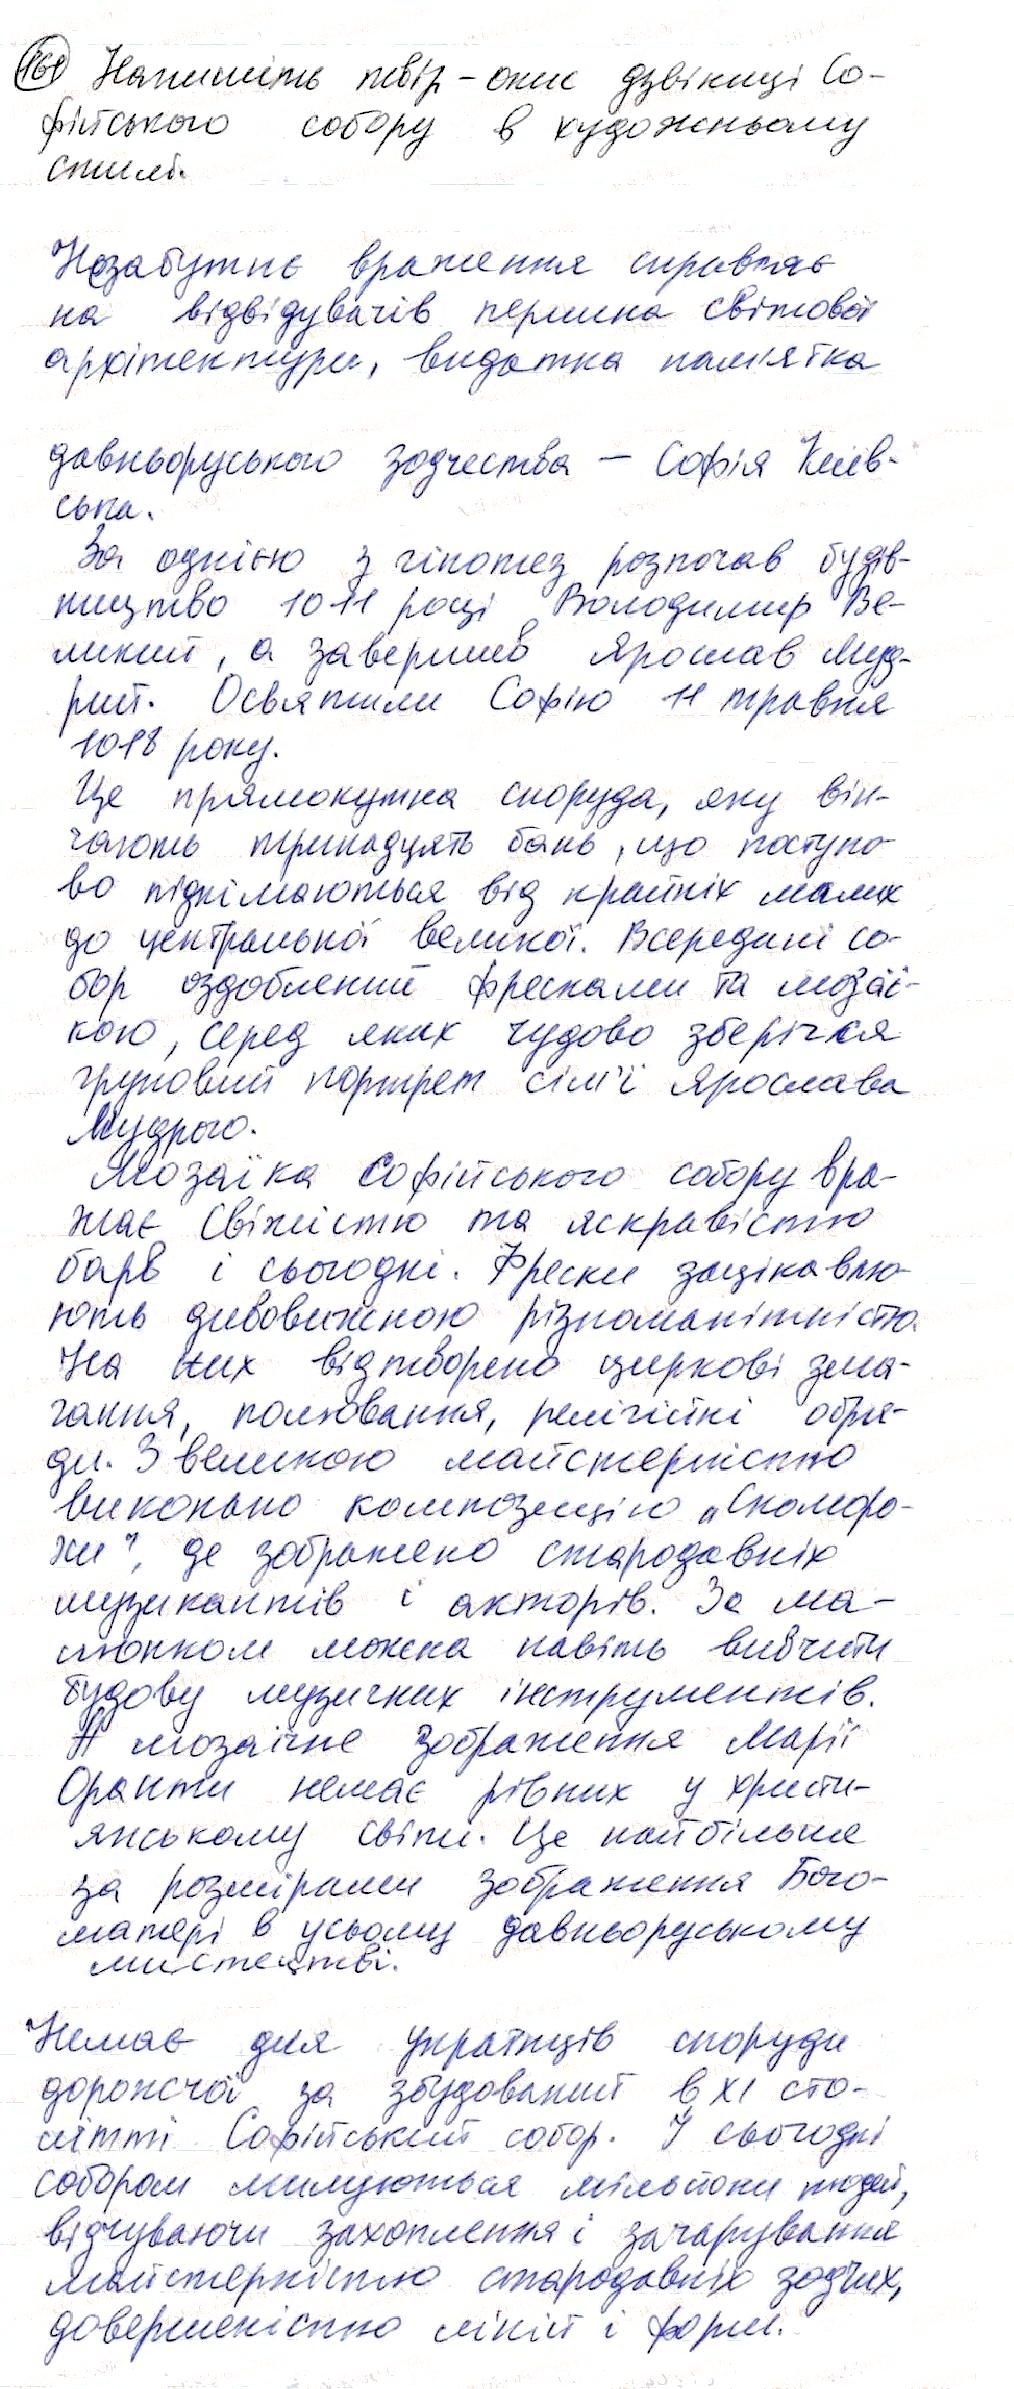 161 Напишіть твір-опис дзвіниці Со-
фійського собору в художньому
стилі.
Незабутнє враження справляє
на відвідувачів перлина світової
архітектури, видатна пам'ятка
давньоруського зодчества – Софія Київ-
ська.
За однією з гіпотез розпочав будів-
ництво 1011 році Володимир Ве-
ликий, а завершив Ярослав Муд-
рий. Освятили Софію 11 травня
1018 року.
Це прямокутна споруда, яку він-
чають тринадцять бань, що поступо-
во піднімаються від крайніх малих
до центральної великої. Всередині со-
бор оздоблений фресками та мозаї-
кою, серед яких чудово зберігся
груповий портрет сім'ї Ярослава
Мудрого.
Мозаїка Софійського собору вра-
жає свіжістю та яскравістю
барв і сьогодні. Фрески зацікавлю-
ють дивовижною різноманітністю.
На них відтворено циркові зма-
гання, полювання, релігійні обря-
ди. З великою майстерністю
виконано композицію „Скоморо-
хи", де зображено стародавніх
музикантів і акторів. За ма-
люнком можна навіть вивчити
будову музичних інструментів.
А мозаїчне зображення Марії
Оранти немає рівних у христи-
янському світи. Це найбільше
за розмірами зображення Бого-
матері в усьому давньоруському
мистецтві.
Немає для українців споруди
дорожчої за збудований в XI сто-
літті Софійський собор. І сьогодні
собором милуються мільйони людей,
відчуваючи захоплення і зачарування
майстерністю стародавніх зодчих,
довершеністю ліній і форм.